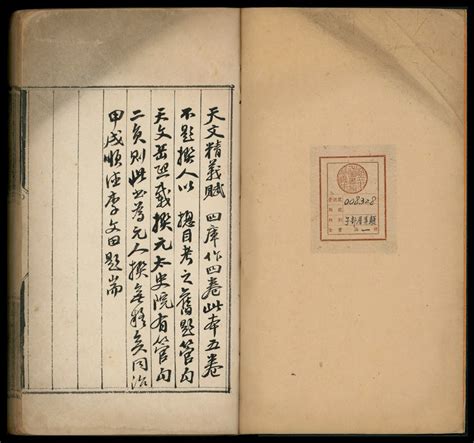 天文精義賦 四庫作四卷此本五卷
不題撰人以 總目考之舊題管勾
天文岳熙載撰元太史院有管勾
二員則此書為元人撰無疑矣同治
甲戌順德李文田題耑
008328